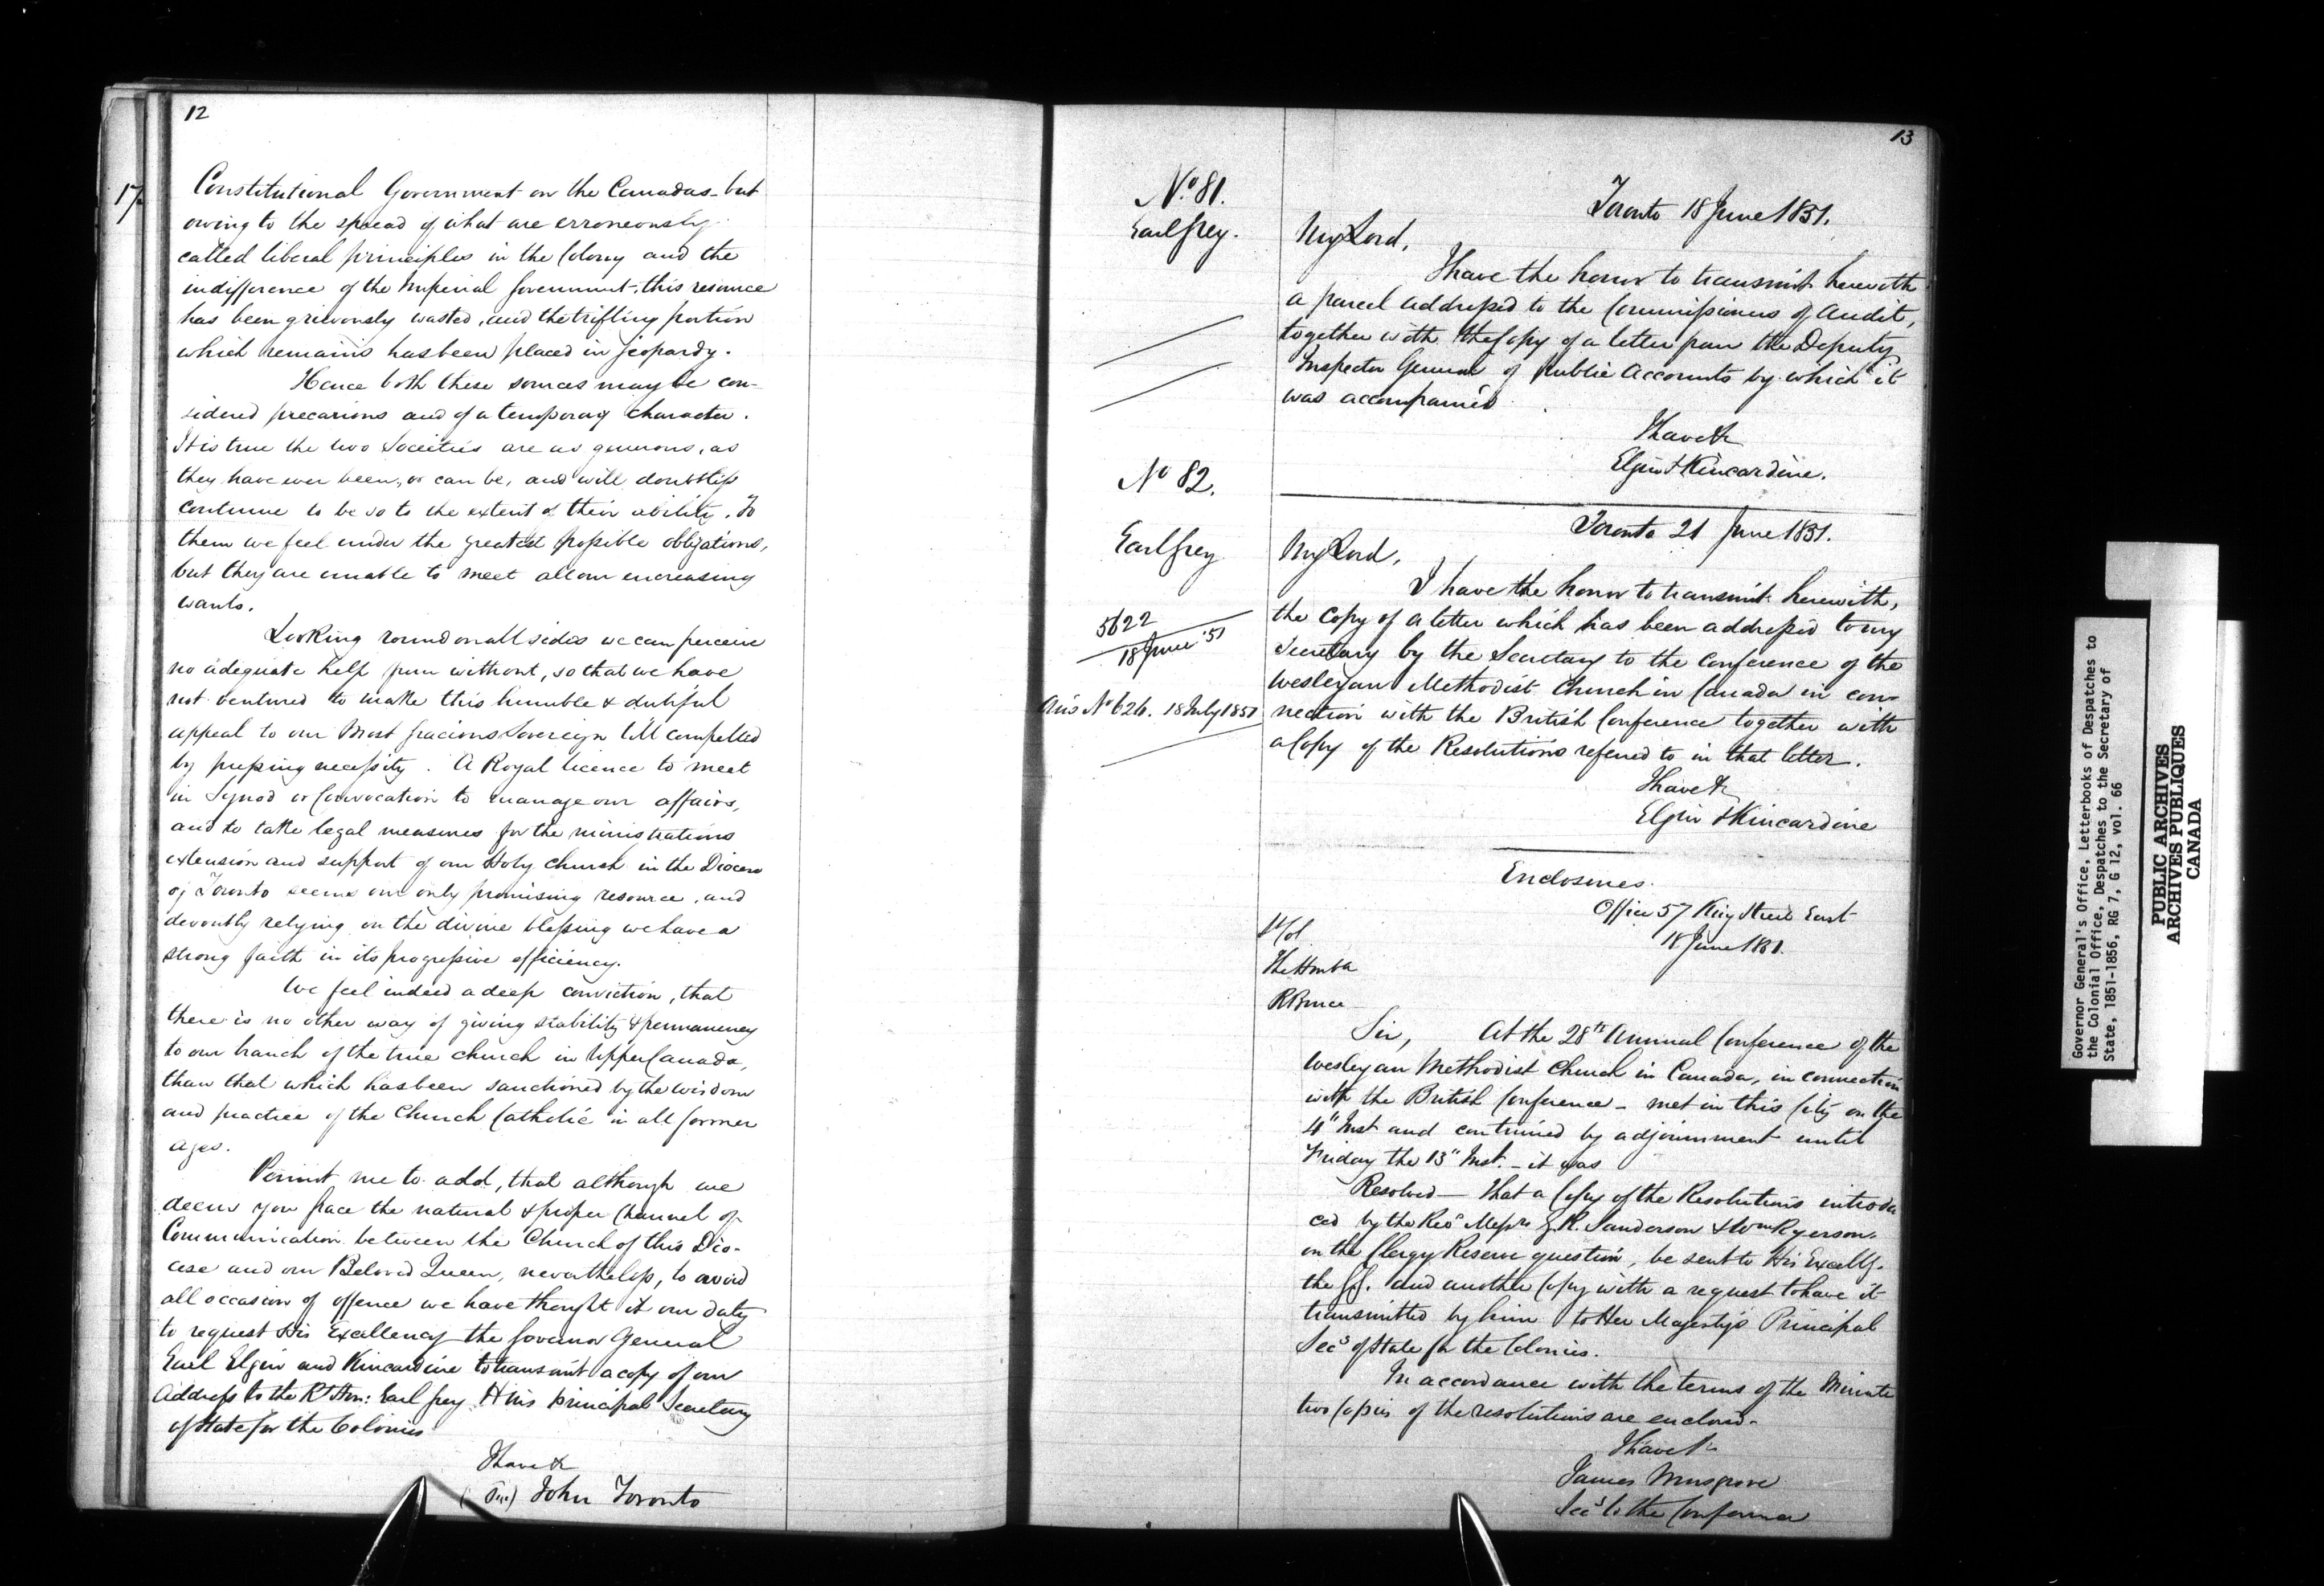 12
17.
Constitutional Government on the Canadas - but
owing to the spread of what are erroneously
called liberal principles in the Colony and the
indifference of the Imperial Government, this resource
has been grievously wasted, and the trifling portion
which remains has been placed in jeopardy.
Hence both these sources may be con-
sidered precarious and of a temporary character.
It is true the two Societies are as generous, as
they have ever been, or can be, and will doubtless
continue to be so to the extent of their ability. To
them we feel under the greatest possible obligations,
but they are unable to meet all our encreasing
wants.
Looking round on all sides we can perceive
no adequate help from without, so that we have
not ventured to make this humble & dutiful
appeal to our Most Gracious Sovereign till compelled
by pressing necessity. A Royal licence to meet
in Synod or Convocation to manage our affairs,
and to take legal measures for the ministrations
extension and support of our Holy Church in the Diocese
of Toronto seems our only promising resource, and
devoutly relying on the divine blessing we have a
strong faith in its progressive efficiency.
We feel indeed a deep conviction, that
there is no other way of giving stability & permanency
to our branch of the true church in Upper Canada,
than that which has been sanctioned by the wisdom
and practice of the Church Catholic in all former
ages.
Permit me to add, that although we
deem your Grace the natural & proper Channel of
Communication between the Church of this Dio-
cese and our Beloved Queen, nevertheless, to avoid
all occasion of offence we have thought it our duty
to request His Excellency the Governor General
Earl Elgin and Kincardine to transmit a copy of our
Address to the Rt Hon: Earl Grey H M's principal Secretary
of State for the Colonies
I have &
John Toronto
13
No. 81.
Earl Grey.
Toronto 18 June 1851.
My Lord,
I have the honor to transmit herewith
a parcel addressed to the Commissioners of Audit,
together with the Copy of a letter from the Deputy
Inspector General of Public Accounts by which it
was accompanied
I have &
Elgin & Kincardine.
No 82.
Earl Grey
Toronto 21 June 1851.
My Lord,
I have the honor to transmit herewith,
the copy of a letter which has been addressed to my
Secretary by the Secretary to the Conference of the
Wesleyan Methodist Church in Canada in con-
nection with the British Conference together with
a Copy of the Resolutions referred to in that letter.
5622
18 June '51
Ans No 626. 18 July 1851
I have &
Elgin & Kincardine
Enclosures.
Office 57 King Street East
18 June 1851.
Lt Col
The Honble
R Bruce
Sir, At the 28th Annual Conference of the
Wesleyan Methodist Church in Canada, in connection
with the British Conference - met in this City on the
4" Inst and continued by adjournment until
Friday the 13" Inst. - it was
Resolved - That a Copy of the Resolutions introdu
ced by the Revd Messrs G. R. Sanderson & Wm Ryerson.
on the Clergy Reserve question, be sent to His Excelly.
the G.G. and another Copy with a request to have it
transmitted by him to Her Majesty's Principal
Secy of State for the Colonies.
In accordance with the terms of the Minute
two Copies of the resolutions are enclosed.
I have &
James Musgrove
Secy to the Conference
Governor General's Office, Letterbooks of Despatches to
the Colonial Office, Despatches to the Secretary of
State, 1851-1856, RG 7, G 12, vol. 66
PUBLIC ARCHIVES
ARCHIVES PUBLIQUES
CANADA